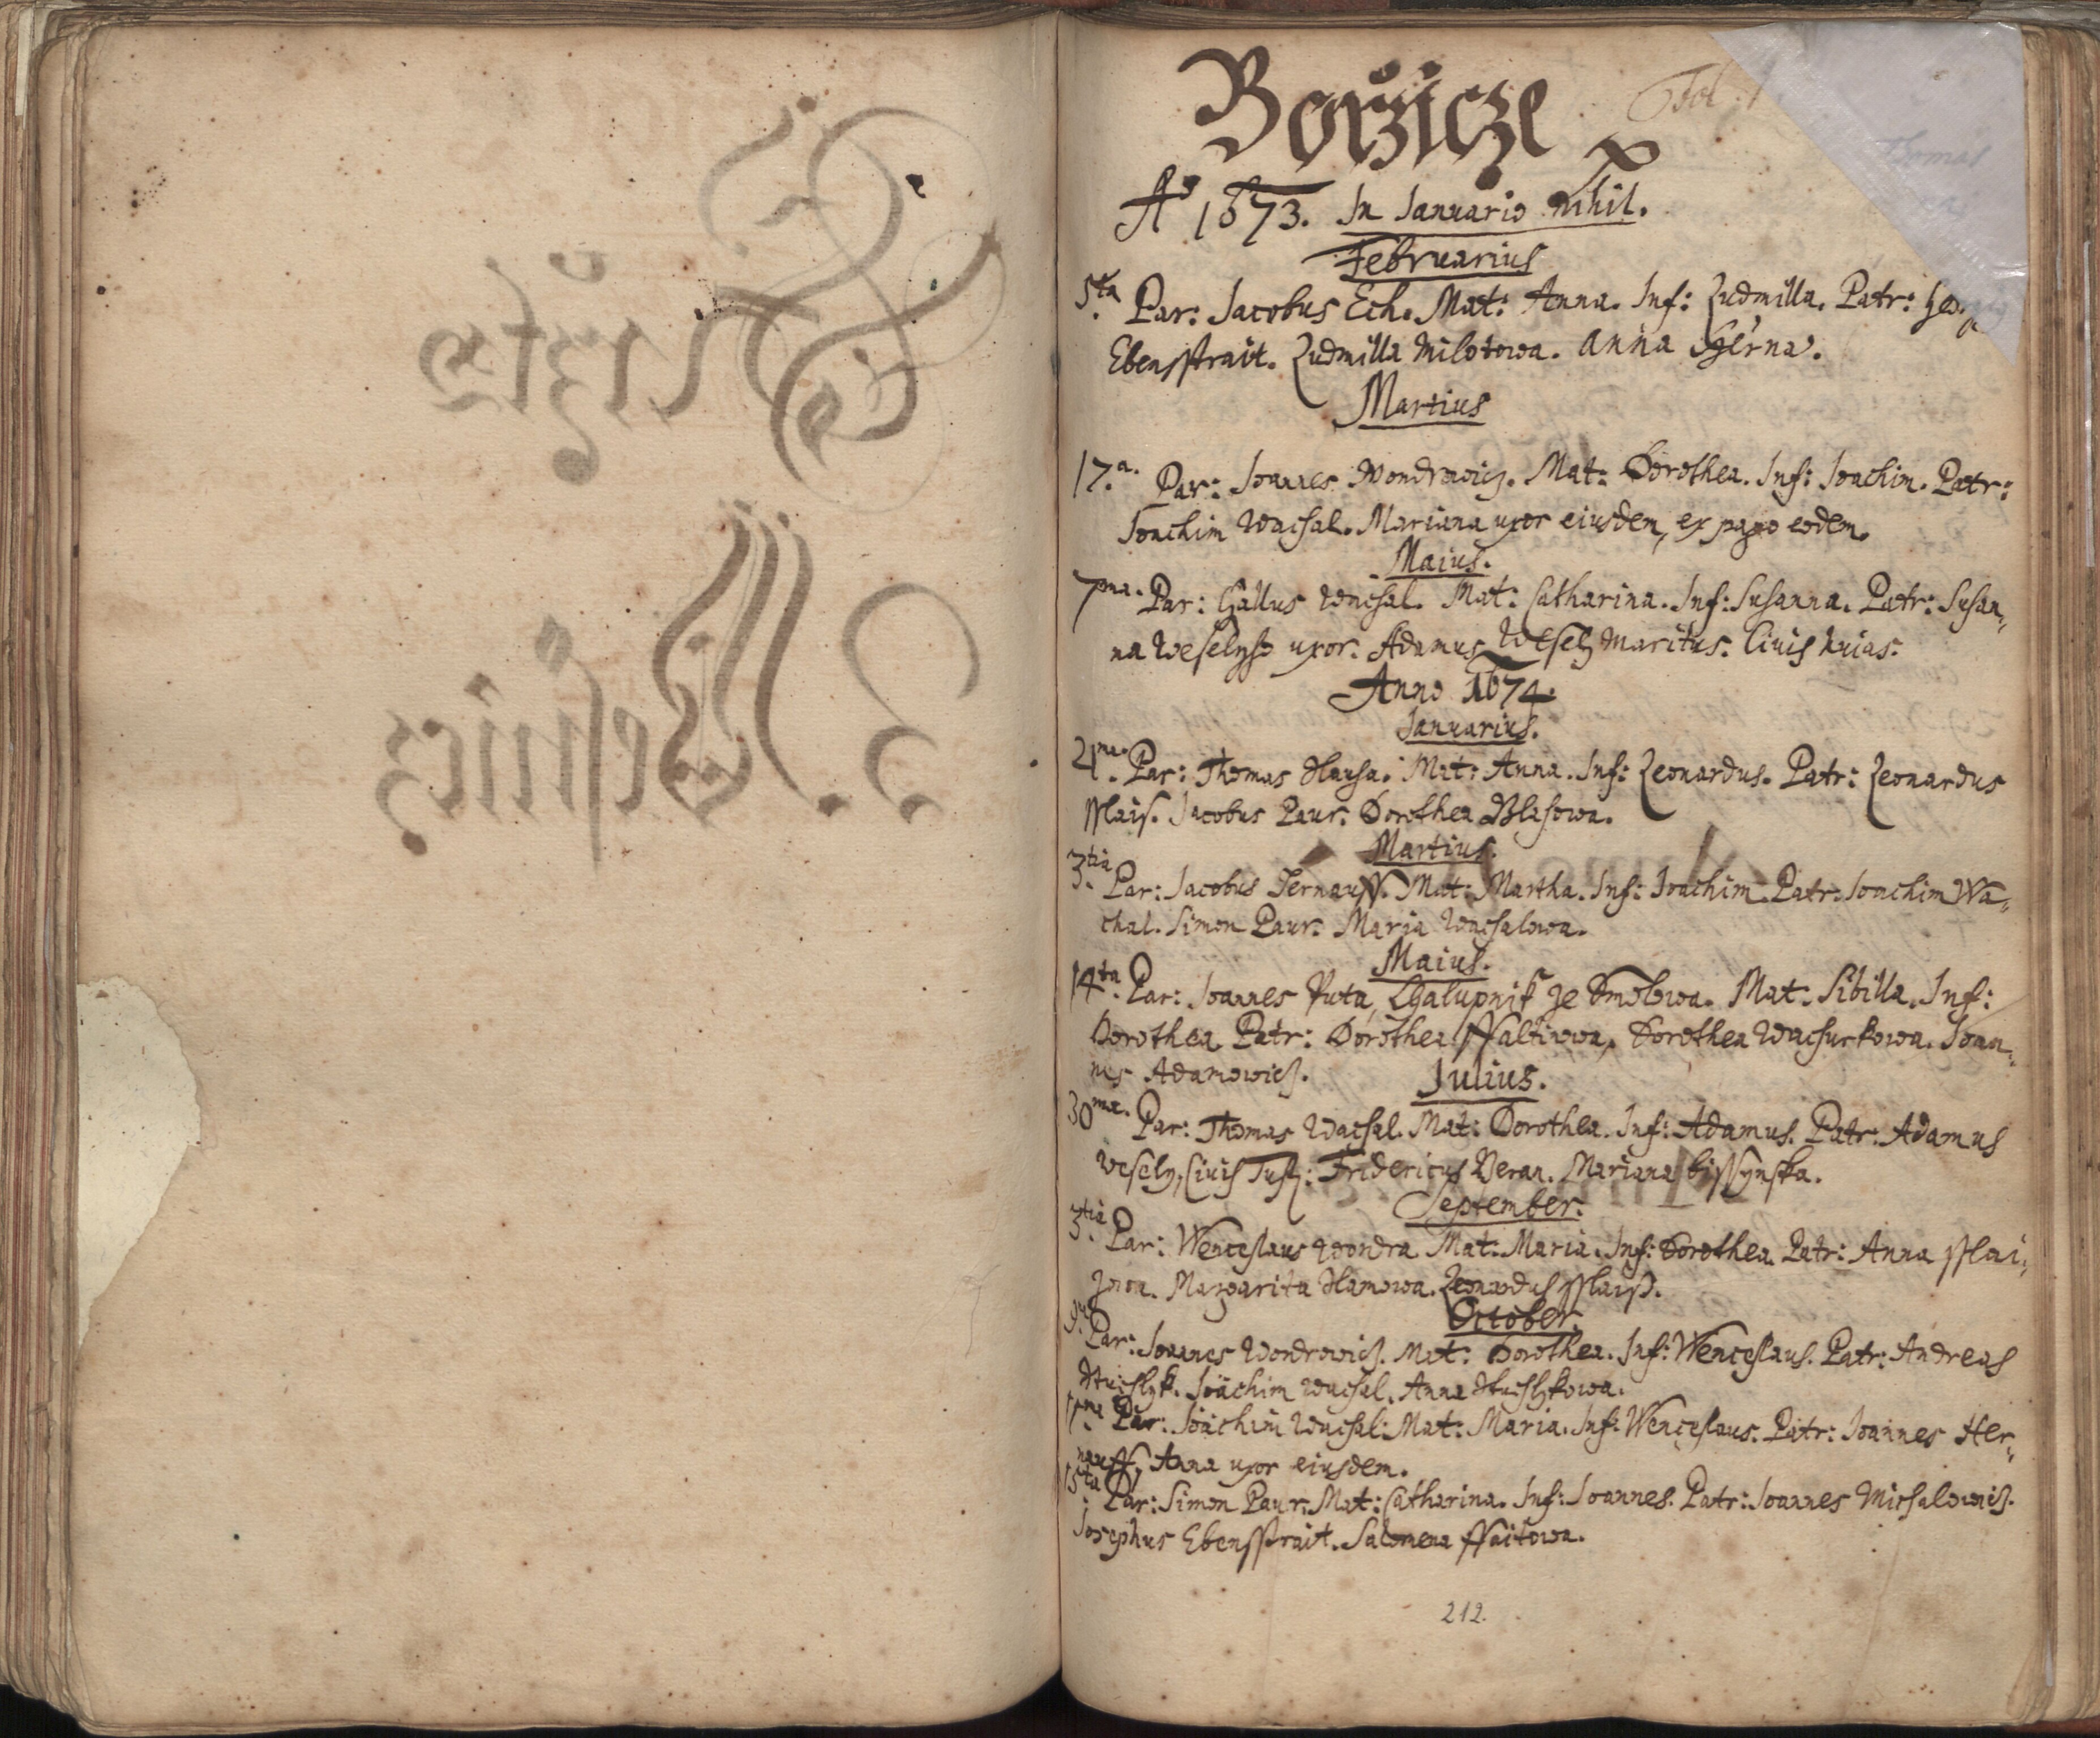 Boržicze
Fol: 1
Ao 1673. In Ianuario nihil.
Februarius
5ta Par: Iacobus Ech. Mat: Anna. Inf: Ludmilla. Patr:
Ebensstrait. Ludmilla Milotowa. Anna
Martius
17.a. Par: Ioannes Wondrowicz. Mat: Dorothea. Inf: Ioachim. Patr:
Ioachim Wachal. Mariana uxor eiusdem, ex pago eodem.
Maius.
7ma. Par: Gallus Wachal. Mat: Catharina. Inf: Susanna. Patr: Susan,,
na Weselys uxor. Adamus Wesely Maritus. Civis huias.
Anno 1674.
Ianuarius.
21ma. Par: Thomas Hausa. Mat: Anna. Inf: Leonardus. Patr: Leonardus
sslais. Iacobus Paur. Dorothea Blasowa.
Martius.
3tia. Par: Iacobus Mat: Martha. Inf: Ioachim. Patr: Ioachim Wa,,
chal. Simon Paur. Maria Wachalowa.
Maius.
14ta. Par: Ioannes Puta, Chalupnik ze Smolowa. Mat: Sibilla. Inf:
Dorothea Patr: Dorothea Dorothea Wachurkowa. Ioan,,
nes Adamowicz.
Iulius.
30ma. Par: Thomas Wachal. Mat: Dorothea. Inf: Adamus. Patr: Adamus
Wesely, Civis Tusz: Fridericus Beran. Mariana
September.
3tia. Par: Wenceslaus Wondra Mat: Maria. Inf: Dorothea. Patr: Anna sslai,,
zowa. Margarita Hamowa. Leonardus sslais.
October.
9a Par: Ioannes Wondrowicz. Mat: Dorothea. Inf: Wenceslaus. Patr: Andreas
Ioachim Wachal. Anna
11ma Par: Ioachim Wachal. Mat: Maria. Inf: Wenceslaus. Patr: Ioannes Her,,
nauss, Anna uxor eiusdem.
15ta Par: Simon Paur. Mat: Catharina. Inf: Ioannes. Patr: Ioannes Michalowicz.
Iosephus Ebensstrait. Salomena ssaitowa.
212.